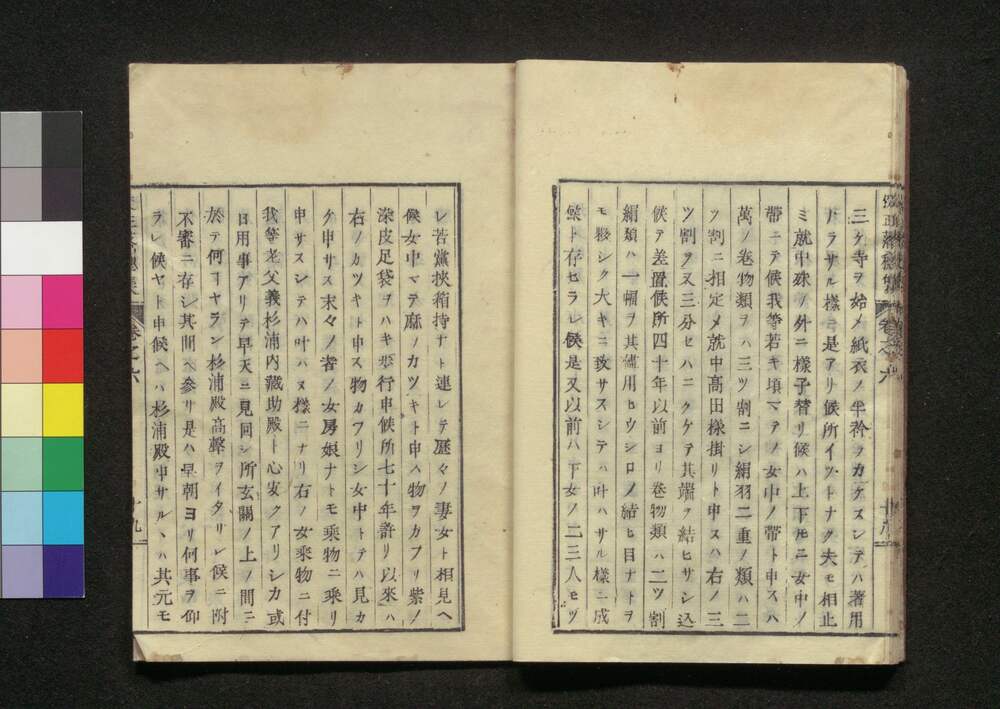 三ケ寺ヲ始メ紙衣ノ半衿ヲカケスシテハ著用
ナラサル様ニ是アリ候所イツトナク夫モ相止
ミ就中殊ノ外ニ様子替リ候ハ上下モニ女中ノ
帶ニテ候我等若キ頃マテノ女中ノ帶ト申スハ
萬ノ卷物類ヲハ三ツ割ニシ絹羽二重ノ類ハ二
ツ割ニ相定メ就中高田様掛リト申スハ右ノ三
ツ割ヲ又三分セハニクケテ其端ヲ結ヒサシ込
候テ差置候所四十年以前ヨリ卷物類ハ二ツ割
絹類ハ一幅ヲ其儘用ヒウシロノ結ヒ目ナトヲ
モ夥シク大キニ致サスシテハ叶ハサル様ニ成
候ト存セラレ候是又以前ハ下女ノ二三人モツ
レ若黨挾箱持ナト連レテ歴々ノ妻女ト相見ヘ
候女中マテ麻ノカツキト申ハ物ヲカフリ紫ノ
染皮足袋ヲハキ歩行申候所七十年許リ以來ハ
右ノカツキト申ス物カフリシ女中トテハ見カ
ケ申サス末々ノ者ノ女房娘ナトモ乘物ニ乘リ
申サスシテハ叶ハヌ様ニナリ右ノ女乘物ニ付
我等老父義杉浦内藏助殿ト心安クアリシカ或
日用事アリテ早天ニ見回シ所玄關ノ上ノ間ニ
於テ何ヤラン杉浦殿高聲ヲイタリレ候ニ附
不審ニ存シ其間ヘ參リ是ハ早朝ヨリ何事ヲ仰
ラレ候ヤト申候ヘハ杉浦殿申サルヽハ其元モ